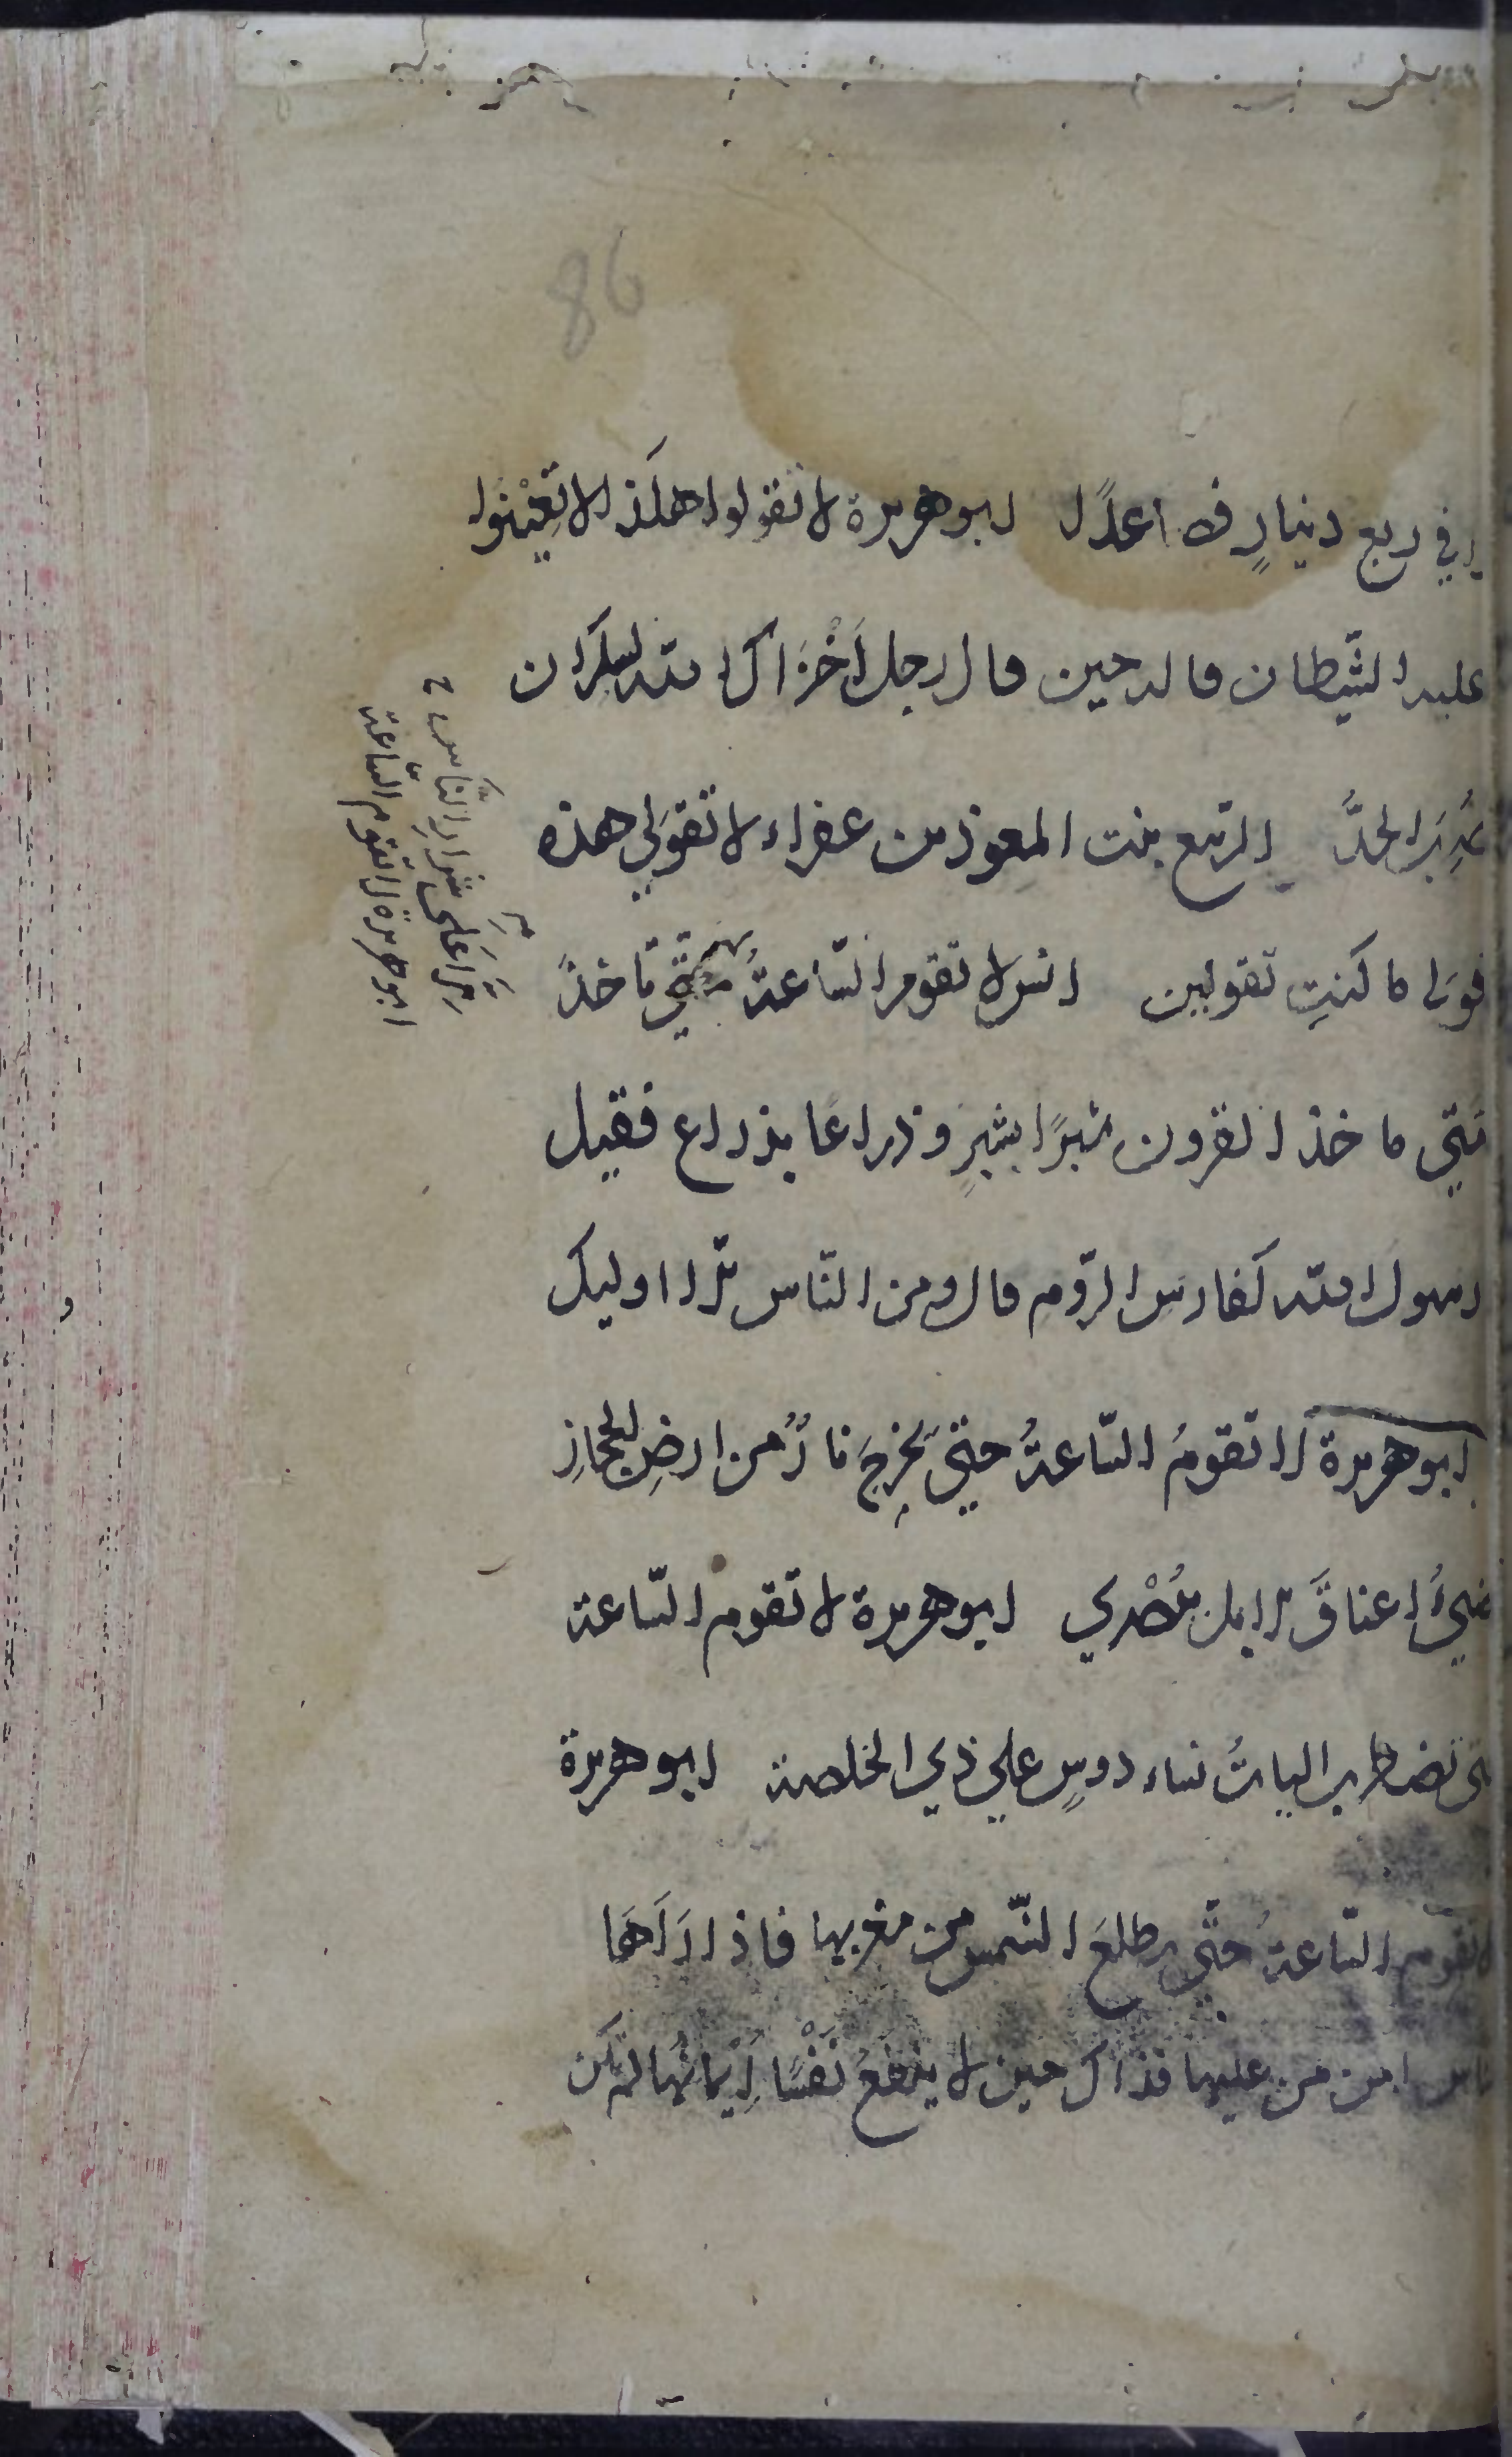 86
في ربع دينار فصاعدًا ابو هريرة لا تقولوا هكذا لا تعِيْنُوا
عليه الشيطان قاله حين قال رجل أَخْزَاك الله لسكران
ضُرِبَ الحدَّ الربيع بنت المعوذ بن عفراء لا تقولي هذه
قولي ما كنتِ تقولين انس لا تقوم السّاعةُ حتي تاخذَ
ماخذ القرون شبرًا بشبرٍ وذراعًا بذراع فقيل
رسول الله كفارس الرّوم قال ومن النّاس الا اوليك
ابو هريرة لا تقومُ السّاعةُ حتي تخرجَ نارٌ من ارضِ الحجازِ
تضيُ اعناقَ الابل ببُصْري ابو هريرة لا تقوم السّاعة
تضطرب الياتُ نساء دوسٍ علي ذي الخلصة ابو هريرة
لا تقوم السّاعةُ حتّي تطلعَ الشّمس من مغربها فاذا رَآهَا
الناس امن من عليها فذاك حين لا ينفعُ نَفْسًا اِيْمانُها لم تكن
ابو هريرة لا تقوم السّاعة
اِلّا عَلي شرارِ النَّاسِ